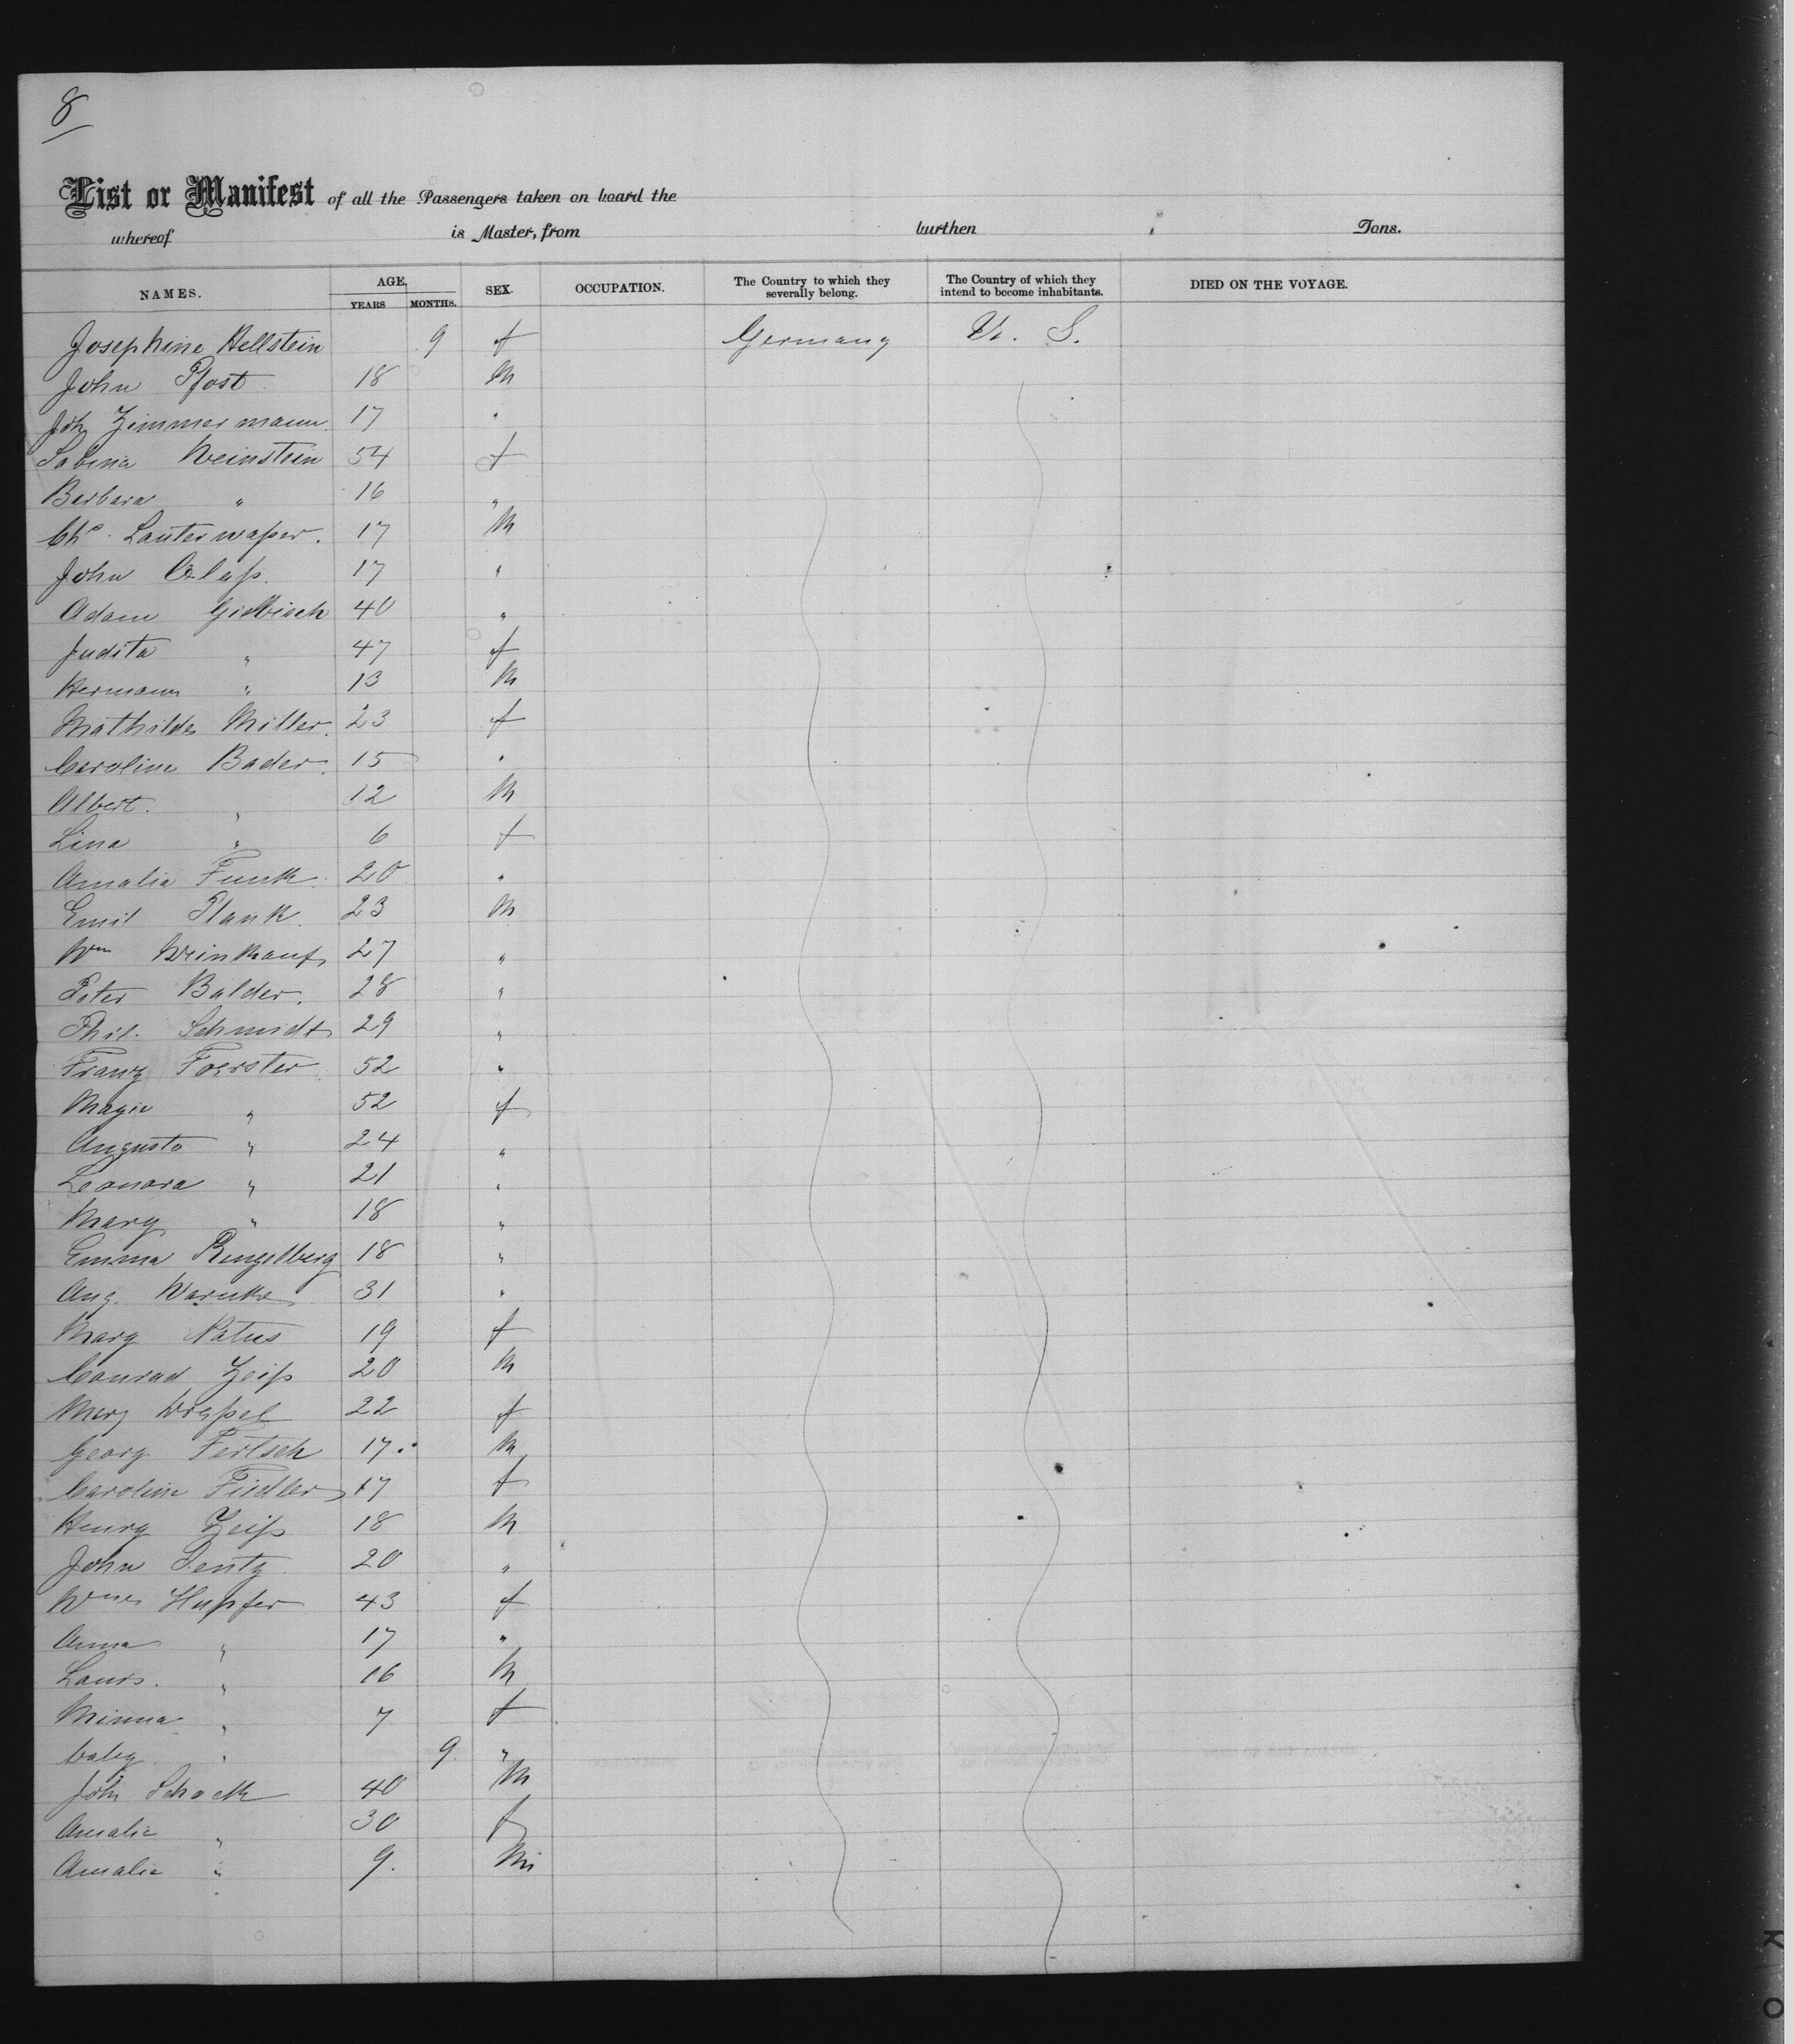 8
List or Manifest of all the Passengers taken on board the
whereof is Master, from burthen Tons.
NAMES. AGE. YEARS MONTHS. SEX. OCCUPATION. The Country to which they severally belong. The Country of which they intend to become inhabitants. DIED ON THE VOYAGE.
Josephine Hellstein 9 f Germany U. S.
John Pfost 18 M
Joh Zimmermann 17 "
Sabina Weinstein 54 f
Barbara " 16 "
Chs. Lauterwaßer. 17 M
John Claß. 17 "
Adam 40 "
Judita " 47 f
Hermann " 13 M
Mathilde Miller. 23 f
Caroline Bader. 15 "
Albert. " 12 M
Lina " 6 f
Amalia Funk. 20 "
Emil Plank. 23 M
Wm Weinkauf 27 "
Peter Balder. 28 "
Phil. Schmidt 29 "
Franz Foerster 52 "
Magie " 52 f
Augusta " 24 "
Leonora " 21 "
Mary " 18 "
Emma Ringelberg 18 "
Aug. Warnke 31 "
Mary Natus 19 f
Conrad Zeiß 20 M
Mary 22 f
Georg Fertsch 17. M
Caroline Fiedler 17 f
Henry Zeiß 18 M
John Lentz 20 "
Hupfer 43 f
Anna " 17 "
Laurs. " 16 M
Minna " 7 f
baby " 9 "
Joh Schack 40 M
Amalie " 30 f
Amalie " 9. M